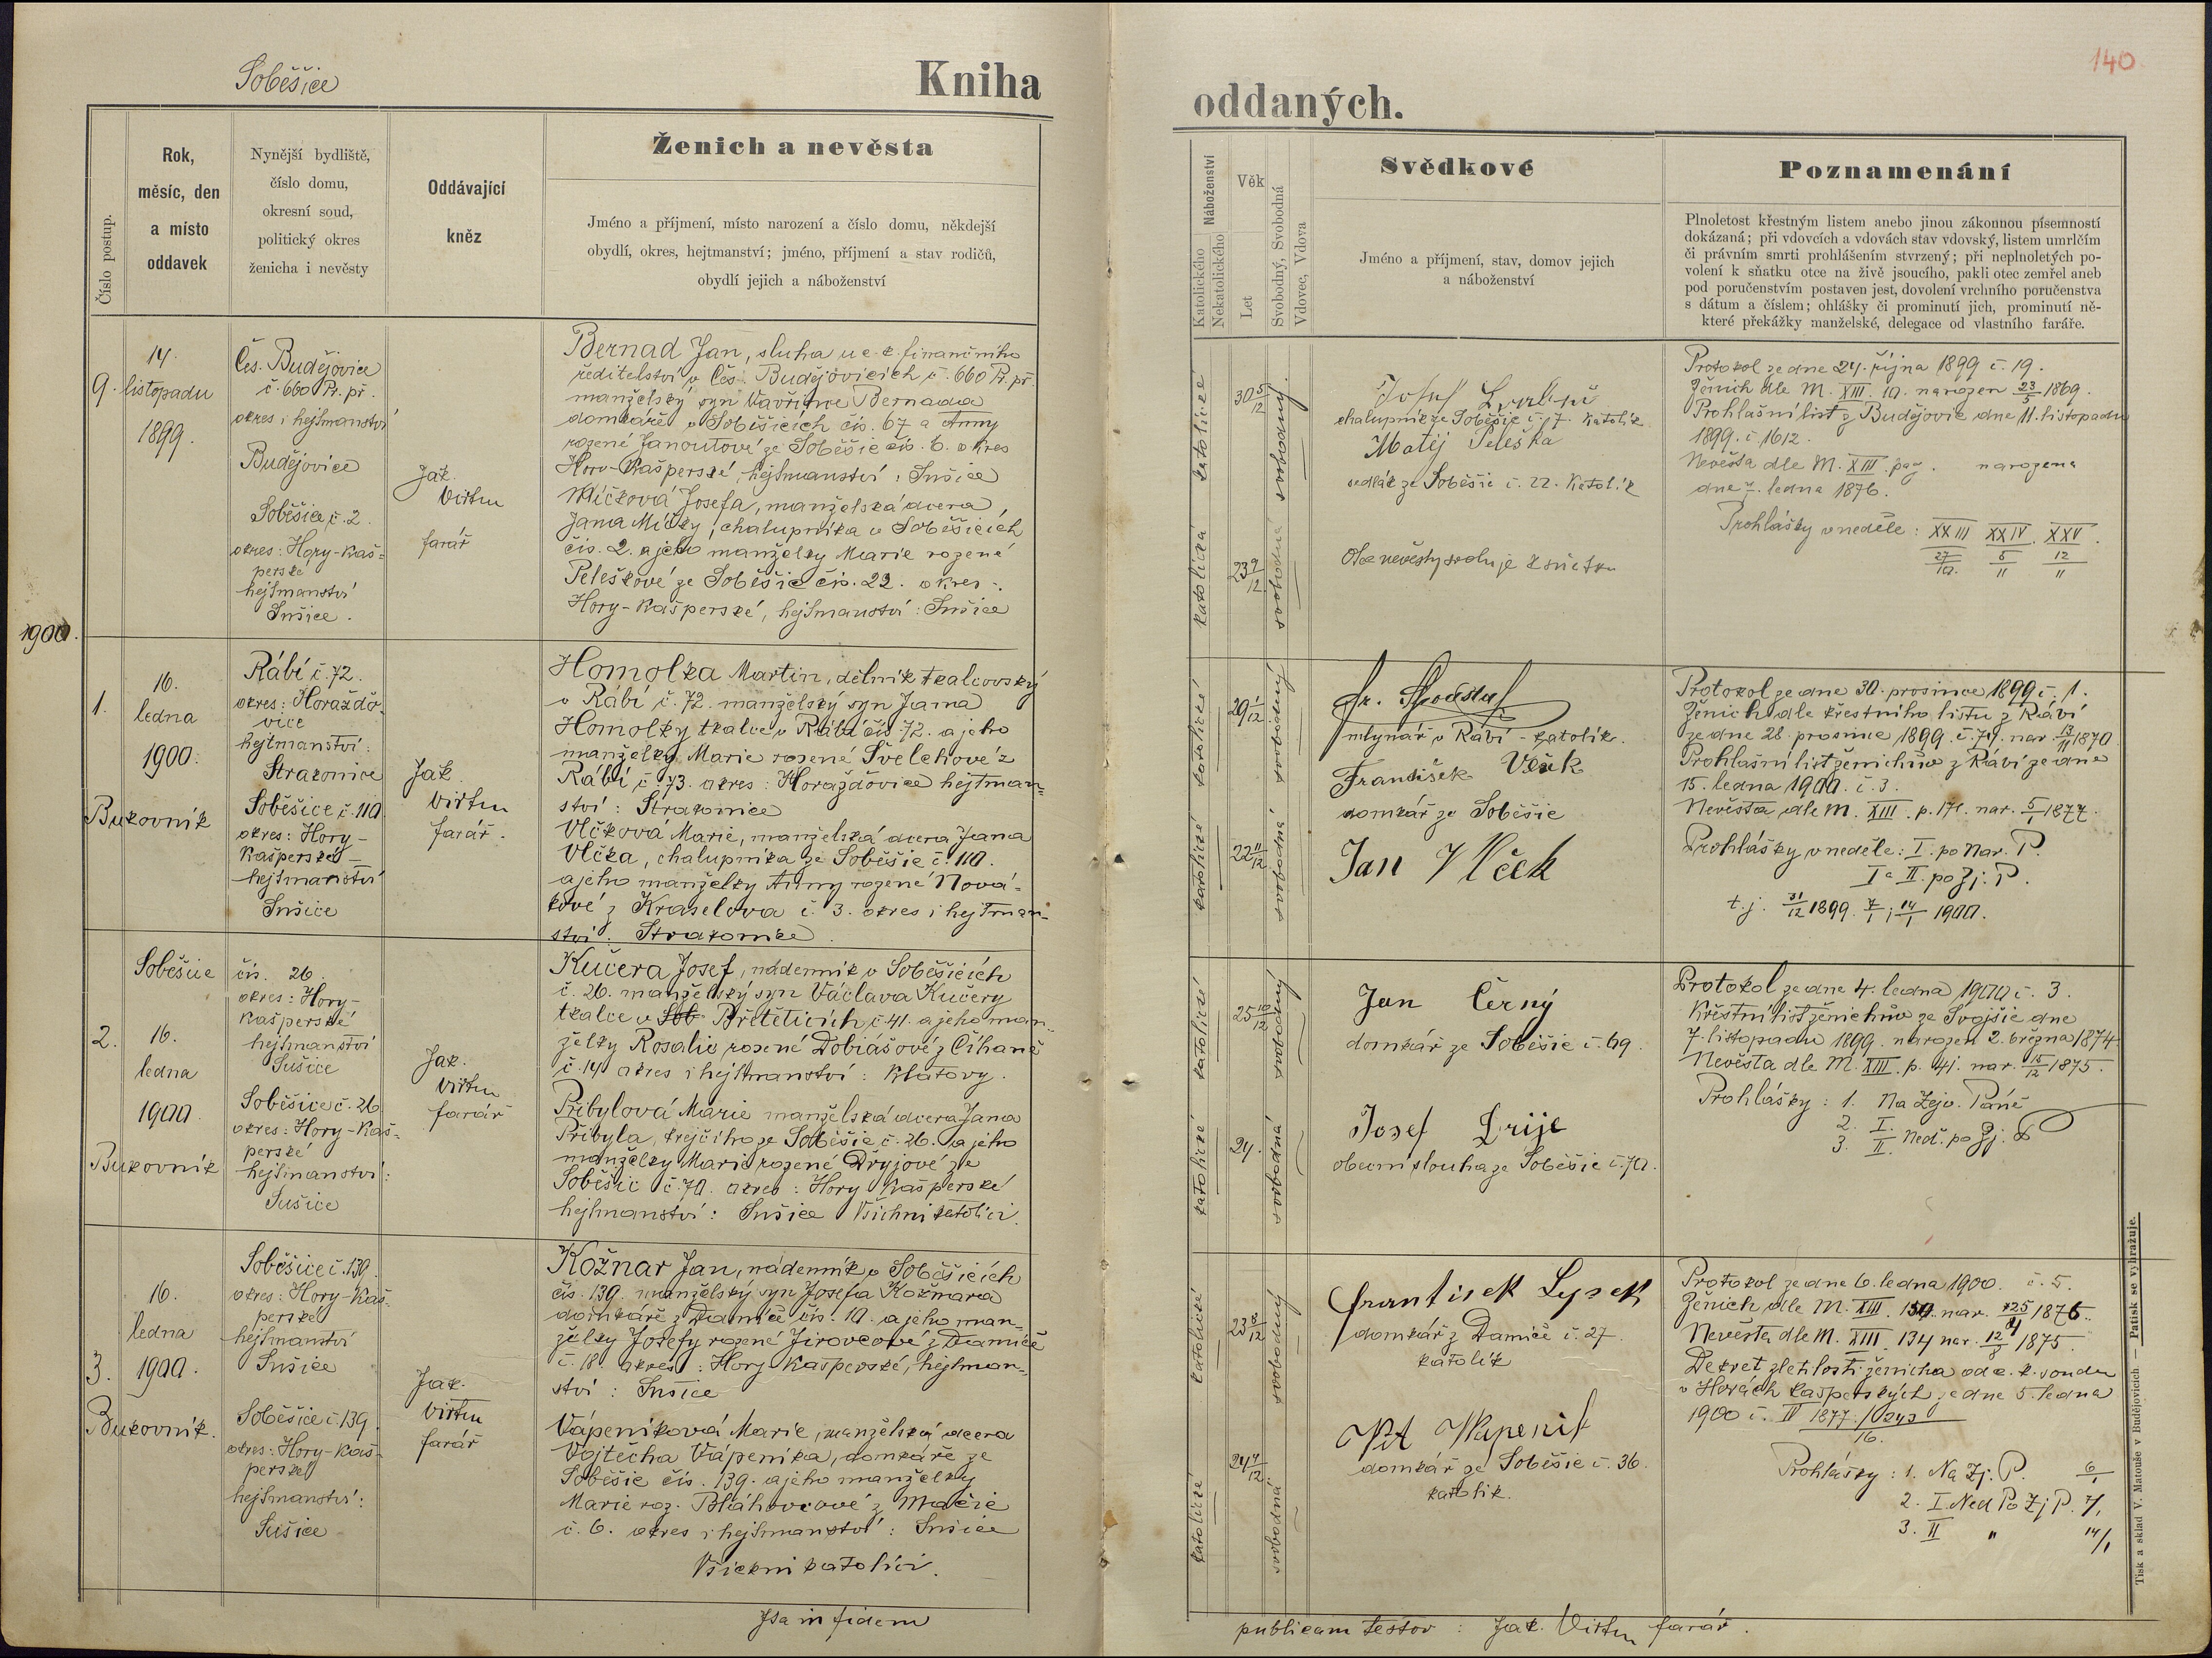 140
Soběšice
Kniha
oddaných.
Číslo postup.
Rok,
měsíc, den
a místo
oddavek
Nynější bydliště,
číslo domu,
okresní soud,
politický okres
ženicha i nevěsty
Oddávající
kněz
Ženich a nevěsta
Jméno a příjmení, místo narození a číslo domu, někdejší
obydlí, okres, hejtmanství; jméno, příjmení a stav rodičů,
obydlí jejich a náboženství
Náboženství
Katolického
Nekatolického
Věk
Let
Svobodný, Svobodná
Vdovec, Vdova
Svědkové
Jméno a příjmení, stav, domov jejich
a náboženství
Poznamenání
Plnoletost křestným listem anebo jinou zákonnou písemností
dokázaná; při vdovcích a vdovách stav vdovský, listem umrlčím
či právním smrti prohlášením stvrzený; při neplnoletých po-
volení k sňatku otce na živě jsoucího, pakli otec zemřel aneb
pod poručenstvím postaven jest, dovolení vrchního poručenstva
s dátum a číslem; ohlášky či prominutí jich, prominutí ně-
které překážky manželské, delegace od vlastního faráře.
9.
14.
listopadu
1899.
Čes. Budějovice
č. 660 Pr. př.
okres i hejtmanství
Budějovice
Soběšice č. 2.
okres: Hory-Kaš=
perské
hejtmanství
Sušice.
Jak.
Virtu
farář
Bernad Jan, sluha u c. k. finančního
ředitelství v Čes. Budějovicích č. 660 Pr. př.
manželský syn Vavřince Bernada
domkáře v Soběšicích čís. 67 a Anny
rozené Janoutové ze Soběšic čís. 6. okres
Hory-Kašperské, hejtmanství: Sušice
Míčková Josefa, manželská dcera
Jana Míčky, chalupníka v Soběšicích
čís. 2. a jeho manželky Marie rozené
Peleškové ze Soběšic čís. 22. okres:
Hory-Kašperské, hejtmanství: Sušice
katolické
30 5/12
svobodný.
katolická
23 9/12
svobodná
Josef
chalupník ze Soběšic č. 7. katolík
Matěj Peleška
sedlák ze Soběšic č. 22. Katolík
Otec nevěsty svoluje k sňatku
Protokol ze dne 24. října 1899 č. 19.
Ženich dle M. XIII. 10. narozen 23/5 1869.
Prohlašní list z Budějovic dne 11. listopadu
1899. č. 1612.
Nevěsta dle M. XIII. pag. narozena
dne 7. ledna 1876.
Prohlášky v neděle: XXIII XXIV. XXV.
27/10. 5/11 12/11
1900.
1.
16.
ledna
1900.
Bukovník
Rábí č. 72.
okres: Horažďo-
vice
hejtmanství:
Strakonice
Soběšice č. 110
okres: Hory-
Kašperské-
hejtmanství
Sušice
Jak.
Virtu
farář.
Homolka Martin, dělník tkalcovský
v Rábí č. 72. manželský syn Jana
Homolky tkalce v Rábí čís. 72. a jeho
manželky Marie rozené Švelchové z
Rábí č. 73. okres: Horažďovice hejtman=
ství: Strakonice
Vlčková Marie, manželská dcera Jana
Vlčka, chalupníka ze Soběšic č. 110.
a jeho manželky Anny rozené Nová-
kové z Kraselova č. 3. okres i hejtman-
ství: Strakonice.
katolické
29 1/12
svobodný
katolické
22 11/12
svobodná
mlynář v Rábí - katolík.
František Vlček
domkář ze Soběšic
Jan Vlček
Protokol ze dne 30. prosince 1899 č. 1.
Ženich dle křestního listu z Rábí
ze dne 28. prosince 1899. č. 711. nar. 13/11 1870
Prohlašní list ženichův z Rábí ze dne
15. ledna 1900. č. 3.
Nevěsta dle M. XIII. p. 171. nar. 5/1 1877.
Prohlášky v neděle: I. po Nar. P.
I a II. po Zj. P.
t. j. 31/12 1899. 7/1 i 14/1 1900.
2.
Soběšice
16.
ledna
1900.
Bukovník
čís. 26.
okres: Hory-
Kašperské
hejtmanství
Sušice
Soběšice č. 26
okres: Hory-Kaš-
perské
hejtmanství:
Sušice
Jak.
Virtu
farář
Kučera Josef, nádenník v Soběšicích
č. 26. manželský syn Václava Kučery
tkalce v Sob Břetěticích č. 41. a jeho man-
želky Rosalie rozené Dobiášové z Číhaně
č. 14 okres i hejtmanství: Klatovy.
Přibylová Marie manželská dcera Jana
Přibyla, krejčího ze Soběšic č. 26. a jeho
manželky Marie rozené Dryjové ze
Soběšic č. 70. okres: Hory Kašperské
hejtmanství: Sušice Všichni katolíci.
katolické
25 10/12
svobodný
katolické
24.
svobodná
Jan Černý
domkář ze Soběšic č. 69.
Josef Drije
obecní slouha ze Soběšic č. 70.
Protokol ze dne 4. ledna 1900 č. 3.
Křestní list ženichův ze Svojšic dne
7. listopadu 1899. narozen 2. března 1874.
Nevěsta dle M. XIII. p. 41. nar. 15/12 1875.
Prohlášky: 1. Na Zejv. Páně
2. I.
3. II. Neď. po Zj. P
3.
16.
ledna
1900.
Bukovník.
Soběšice č. 139.
okres: Hory-Kaš-
perské
hejtmanství
Sušice
Soběšice č. 139.
okres: Hory-Kaš-
perské
hejtmanství:
Sušice
Jak.
Virtu
farář
Kožnar Jan, nádenník v Soběšicích
čís. 139. manželský syn Josefa Kožnara
domkáře z Damíče čís. 10. a jeho man-
želky Josefy rozené Jirovcové z Damíče
č. 18. okres: Hory Kašperské, hejtman-
ství: Sušice
Vápeníková Marie, manželská dcera
Vojtěcha Vápeníka, domkáře ze
Soběšic čís. 139. a jeho manželky
Marie roz. Bláhovcové z Mačic
č. 6. okres i hejtmanství: Sušice
Všickni katolíci.
katolické
23 8/12
svobodný
katolické
24 4/12
svobodná
frantisek Lysek
domkář z Damíče č. 27.
katolík
Vít Wapenik
domkář ze Soběšic č. 36.
katolík.
Protokol ze dne 6. ledna 1900. č. 5.
Ženich dle M. XIII. nar. 1876.
Nevěsta dle M. XIII. 134 nar. 12/8 1875.
Dekret zletilosti ženicha od c. k. soudu
v Horách Kašperských ze dne 5. ledna
1900 č. IV 1877./
16.
Prohlášky: 1. Na Zj. P. 6/1
2. I. Ned Po Zj P. 7/1
3. II " 14/1
Tisk a sklad V. Matouše v Budějovicích. — Patisk se vyhražuje.
Ita in fidem
publicam testor: Jak. Virtu farář.